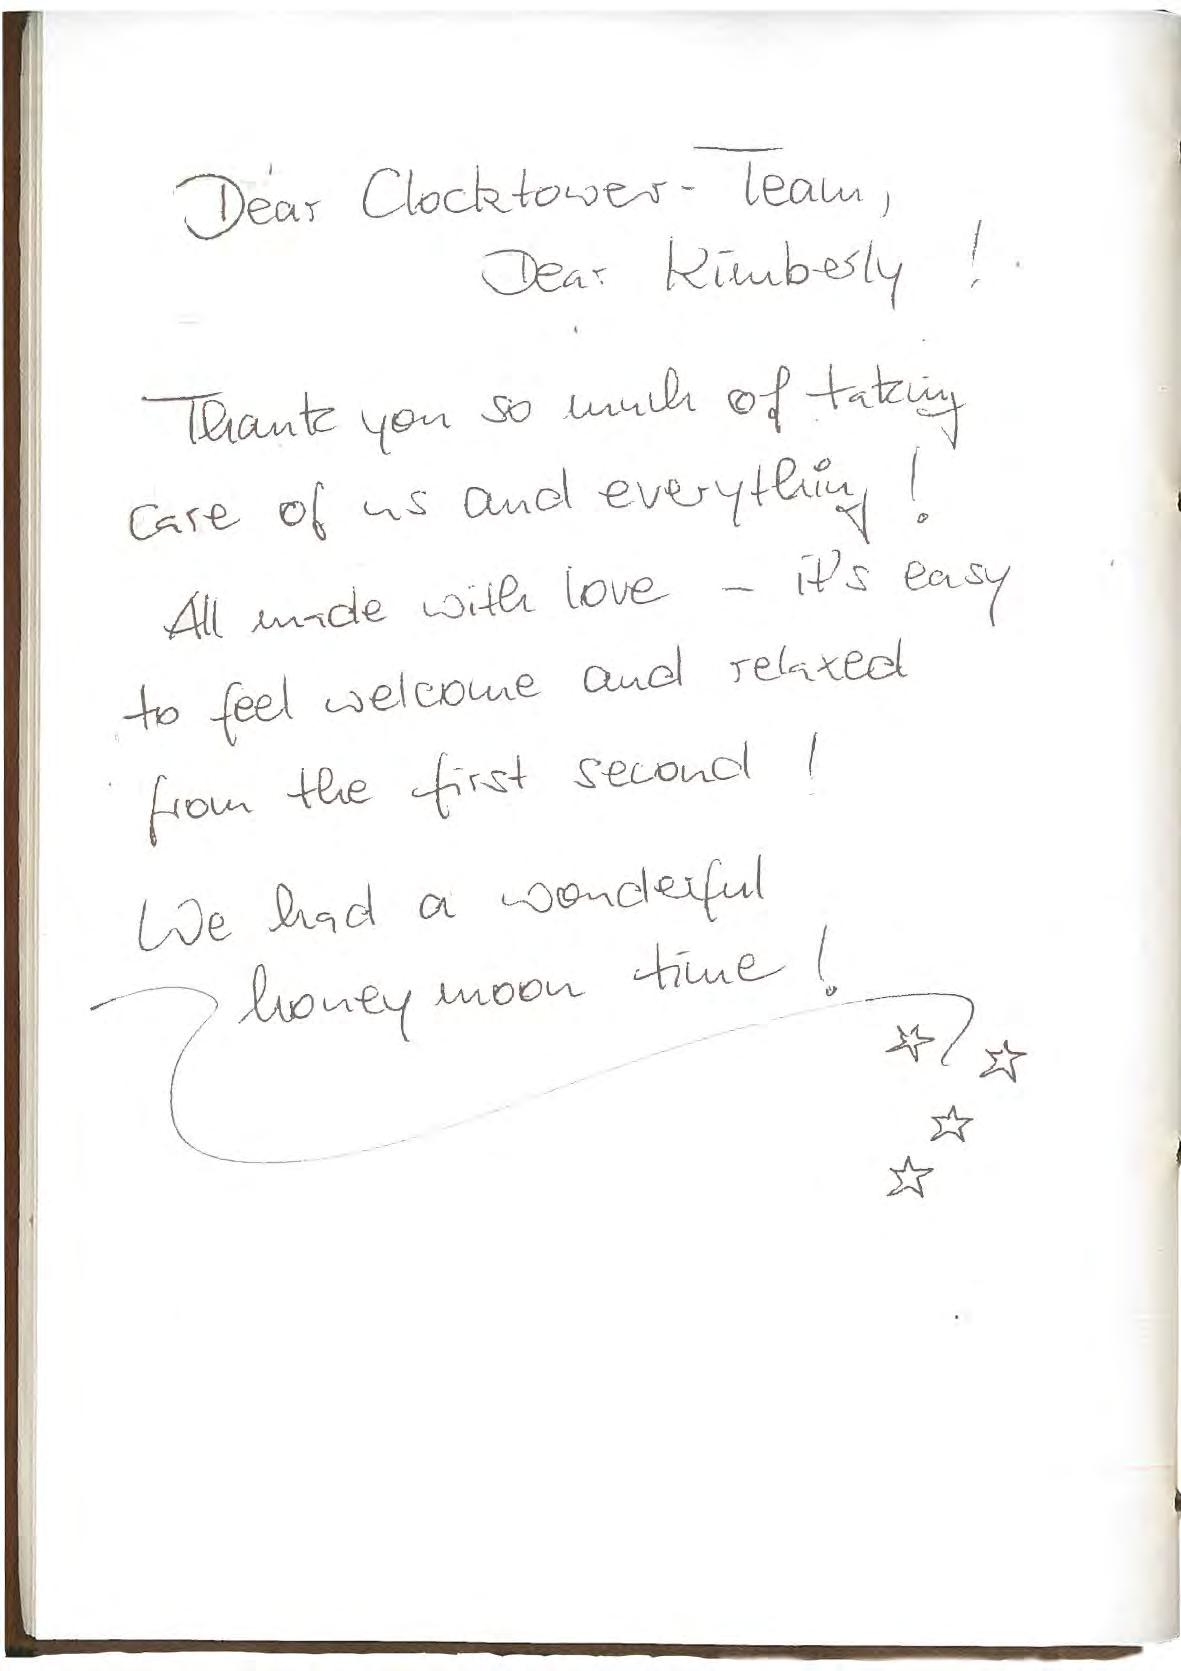 Dear Clocktower-Team,
Dear Kimberly!
Thank you so much of taking
care of us and everything!
All made with love – it's easy
to feel welcome and relaxed
from the first second!
We had a wonderful
honeymoon time!